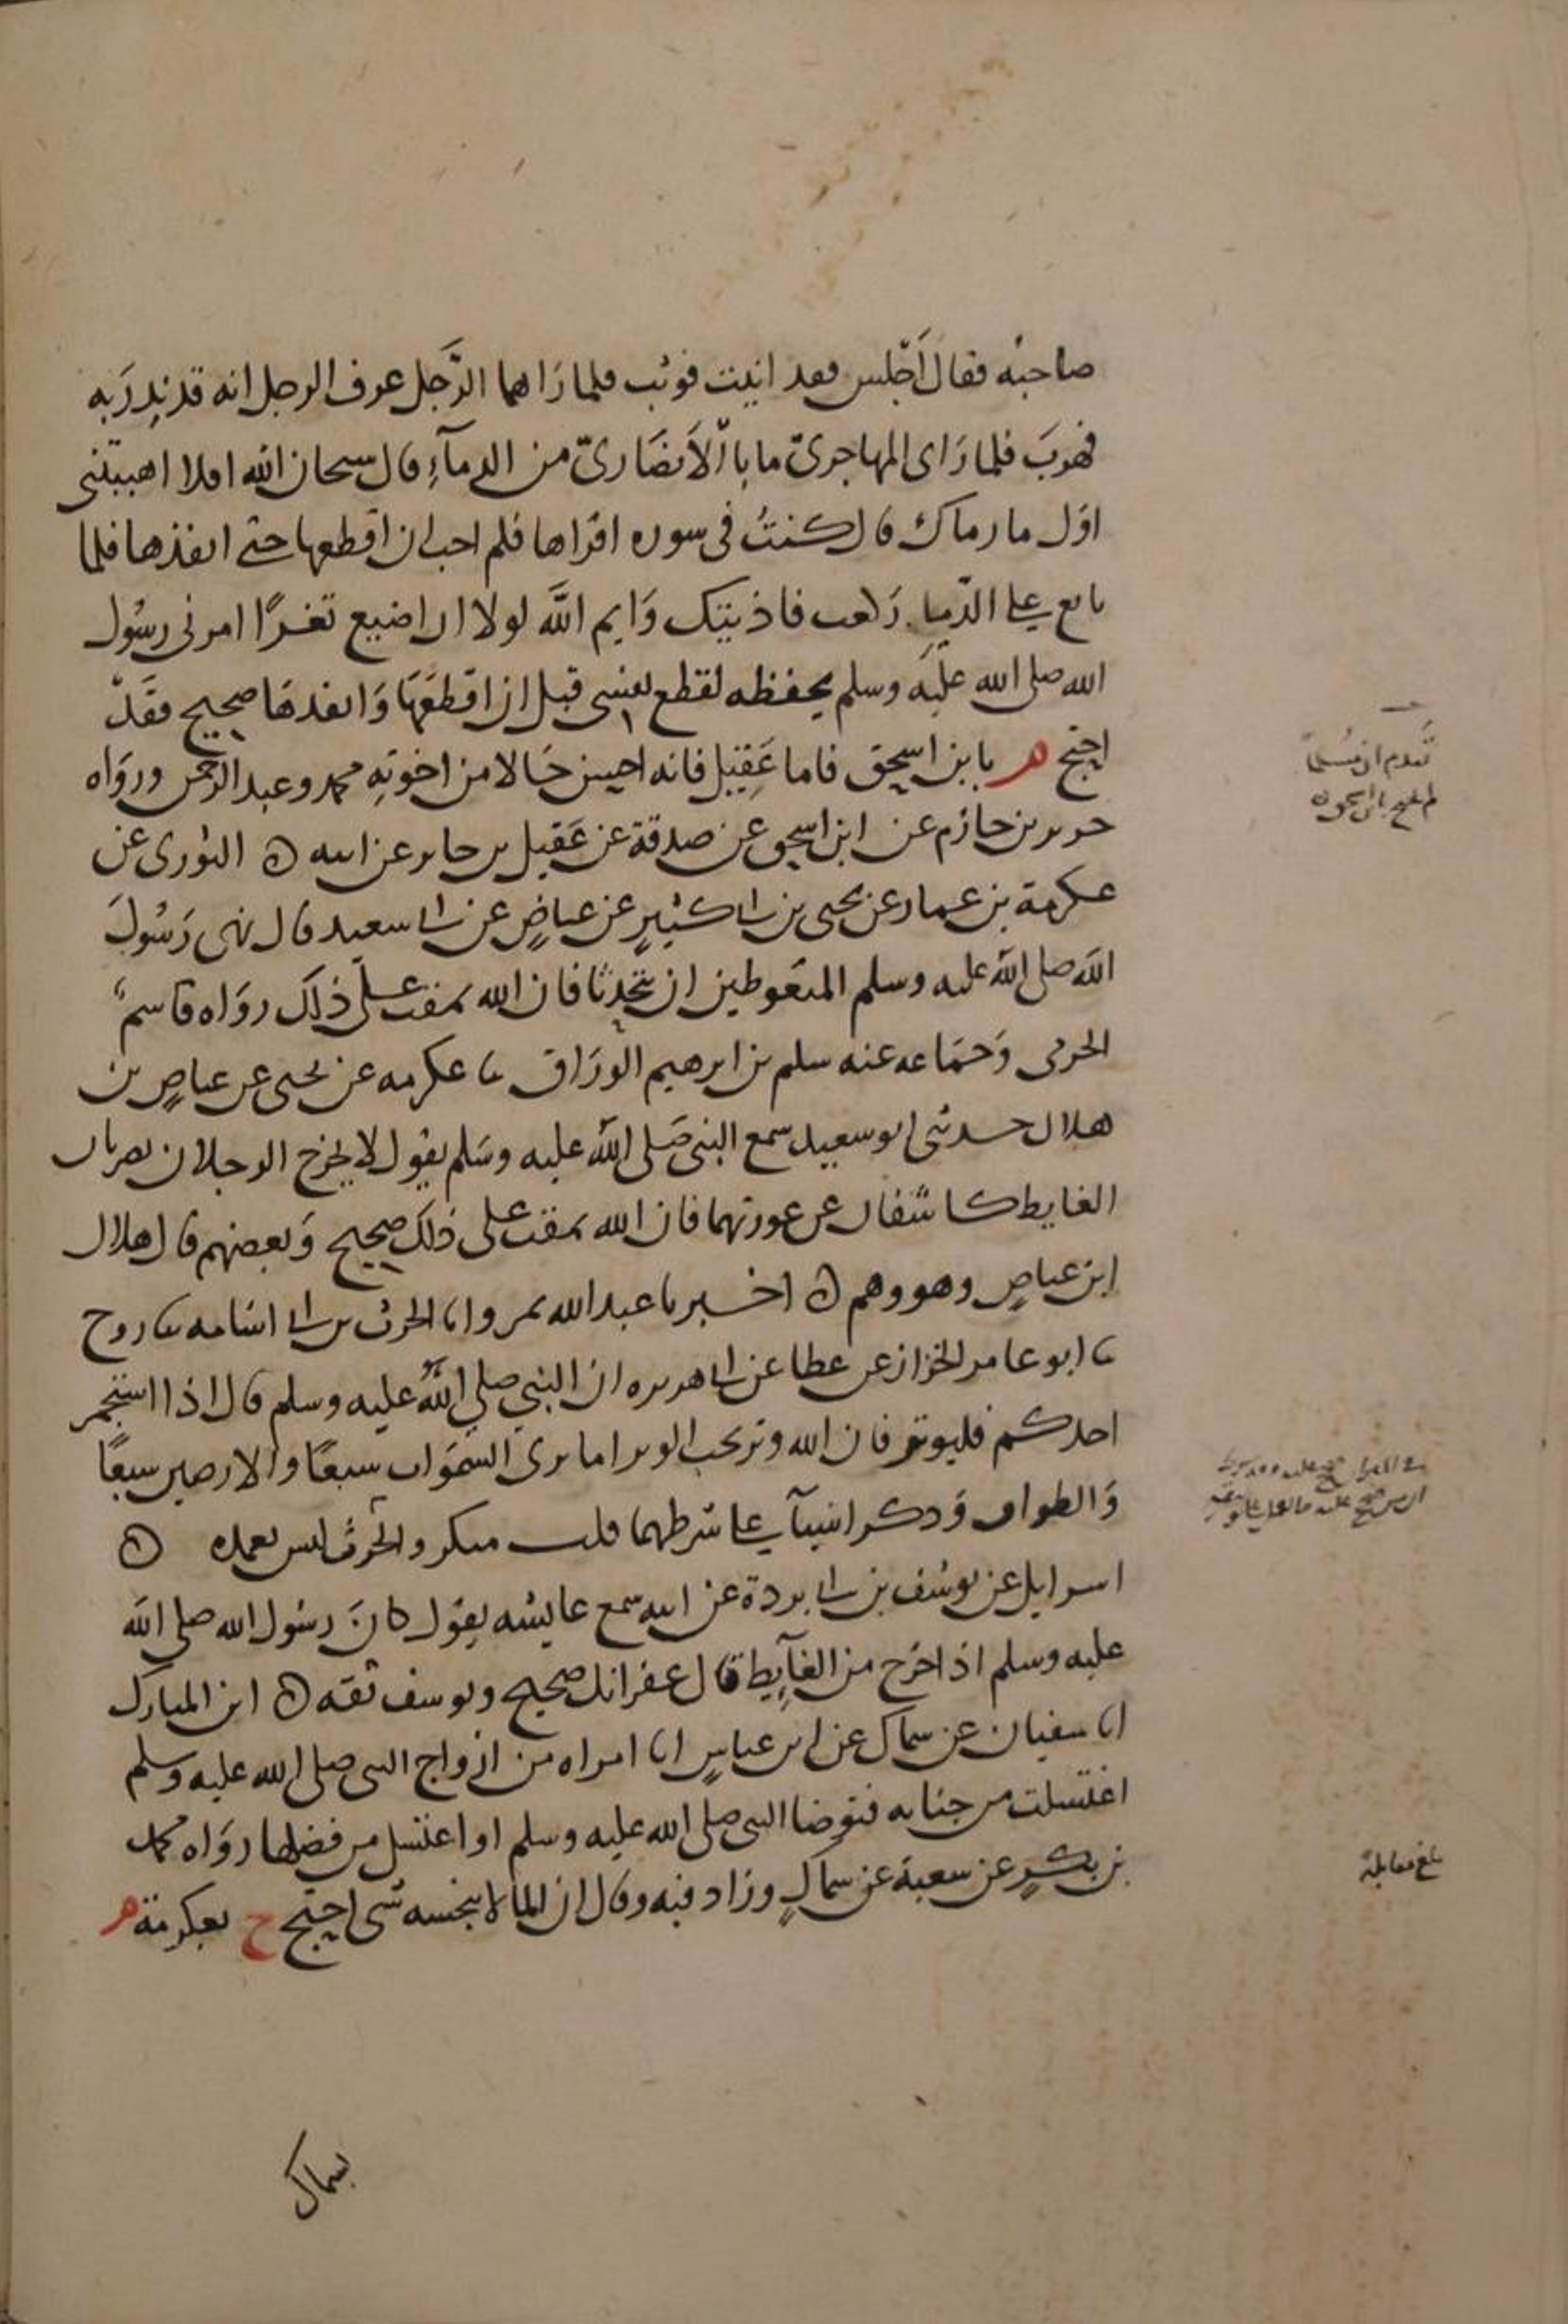 صاحبه فقال اجلس فقد اتيت فوثب فلما رَاهما الرَّجل عرف الرجل انه قد نذِرَ به
فهربَ فلما رَاى المهاجرىّ ما بالاَنصَارىّ من الدمآءِ قال سبحان الله افلا اهببتنى
اوّل ما رماك قال كنتُ فى سوره اقراها فلم احب ان اقطعها حتى انفذها فلما
تابع على الرّميا رَكعت فاذنيتك وَايم الله لولا ان اضيع ثغرًا امرنى رسُول
الله صلى الله عليَه وسلم بحفظه لقطع نفسى قبل ان اقطعَهَا وَانفدهَا صحيح فقَدْ
احتج م بابن اسحق فاما عَقِيل فانه احسن حَالا من اخوتِه محمد وعبد الرحمن ورَواه
جرير بن حازم عن ابن اسحق عن صدقة عن عَقيل بن جابر عن ابيه ه الثورى عن
عكرمة بن عمار عن يحيى بن ابى كثيرٍ عن عياضٍ عن ابى سعيد قال نهى رَسُولَ
الله صلى الله عليه وسلم المتغوطين ان يتحدثا فان الله يمقت على ذلك روَاه قاسمٌ
الجرمى وَجمَاعه عنه سلم بن ابرهيم الورَاق ثنا عكرمه عن يحيى عن عياضٍ بن
هلال حدثنى ابو سعيد سمع النبى صَلى الله عليه وسَلم يقول لا يخرج الرجلان يضربان
الغايط كاشفان عن عورتهما فان الله يمقت على ذلك صحيح وَبعضهم قال هلال
ابن عياضٍ وهو وهم ه اخبرنا عبد الله بمرو انا الحرث بن ابى اسَامه ثنا روح
ثنا ابو عامر الخزاز عن عطا عن ابى هريره ان النبي صلي الله عليه وسلم قال اذا استجمر
احدكم فليوتر فان الله وتر يحب الوتر اما ترى السموَات سبعًا والارضين سبعًا
وَالطواف وَذكر اشيآ على شرطهما قلت منكر والحرث ليس بعمده ه
اسرايل عن يوسُف بن ابى بردة عن ابيه سمع عايشه يقوَل كانَ رسُول الله صلى الله
عليه وسلم اذا خرج من الغآيِط قال غفرانك صحيح ويوسف ثقه ه ابن المبارك
انا سفيان عن سماك عن ابن عباسٍ ان امراه من ازواج النبى صلى الله عليه وسلم
اغتسلت من جنابه فتوضا النبى صلى الله عليه وسلم او اغتسل من فضلها روَاه محمد
بن بكرٍ عن شعبة عن سماكٍ وزاد فيه وقال ان الما لا ينجسه شى احتج خ بعكرمة م
بسماك
تقدم ان مُسلماً
لم يحتج بابن اسحق ه
بلغ مقابلة